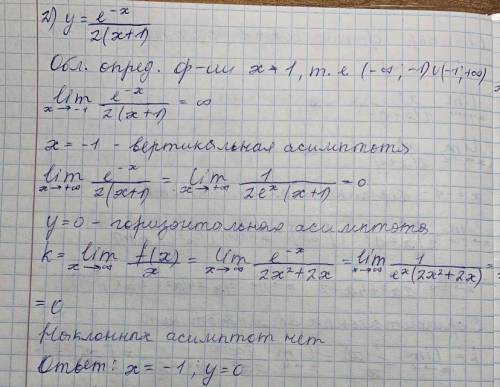 2) y = e^{-x} / 2(x+1)
Обл. опред. ф-ии x ≠ 1, т.е (-∞; -1) ∪ (-1; +∞)
lim x→-1 e^{-x} / 2(x+1) = ∞
x = -1 - вертикальная асимптота
lim x→+∞ e^{-x} / 2(x+1) = lim x→+∞ 1 / 2e^x (x+1) = 0
y=0 - горизонтальная асимптота
k = lim x→∞ f(x) / x = lim x→∞ e^{-x} / 2x²+2x = lim x→∞ 1 / e^x(2x²+2x) =
= 0
Наклонных асимптот нет
Ответ: x = -1; y=0